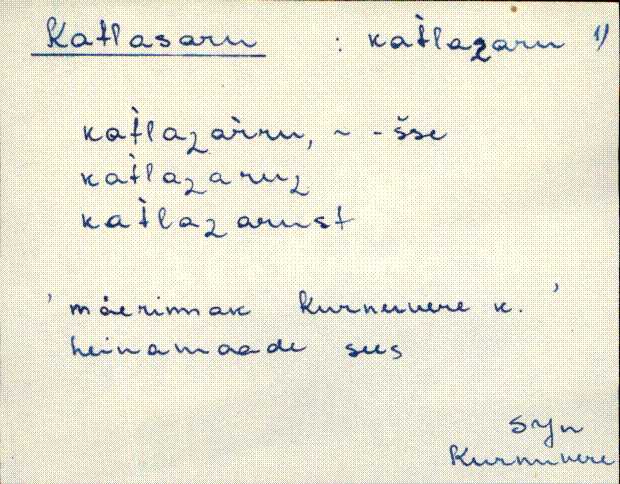 Katlasaru : kat̀lazaru 1)
kat̀lazàrru, ~ -šse
kat̀lazaruz
kat̀lazarust
' mäerinnak Kurnuvere k. '
heinamaade sees
Syn
Kurnuvere